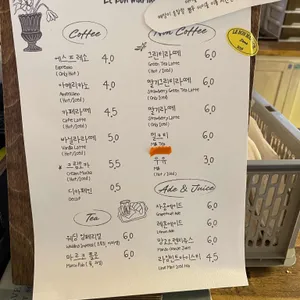 Coffee
에스프레소 4.0
Espresso
(Only Hot)
아메리카노 4.0
Americano
(Hot / Iced)
카페라떼 4.5
Caffe Latte
(Hot / Iced)
바닐라라떼 5.0
Vanilla Latte
(Hot / Iced)
5.5
Cream Mocha
(Hot / Iced)
디카페인 0.5
Decaf
Tea
웨딩 임페리얼 6.0
Wedding Imperial
마르코폴로 6.0
Marco Polo
Non Coffee
그린티라떼 6.0
Green Tea Latte
(Hot / Iced)
딸기그린티라떼 6.5
Strawberry Green Tea Latte
(Only Iced)
딸기라떼 6.5
Strawberry Latte
(Only Iced)
밀크티 5.0
Milk Tea
우유 3.0
Milk
(Hot / Iced)
Ade & Juice
자몽에이드 6.0
Grapefruit Ade
레몬에이드 6.0
Lemon Ade
6.0
4.5